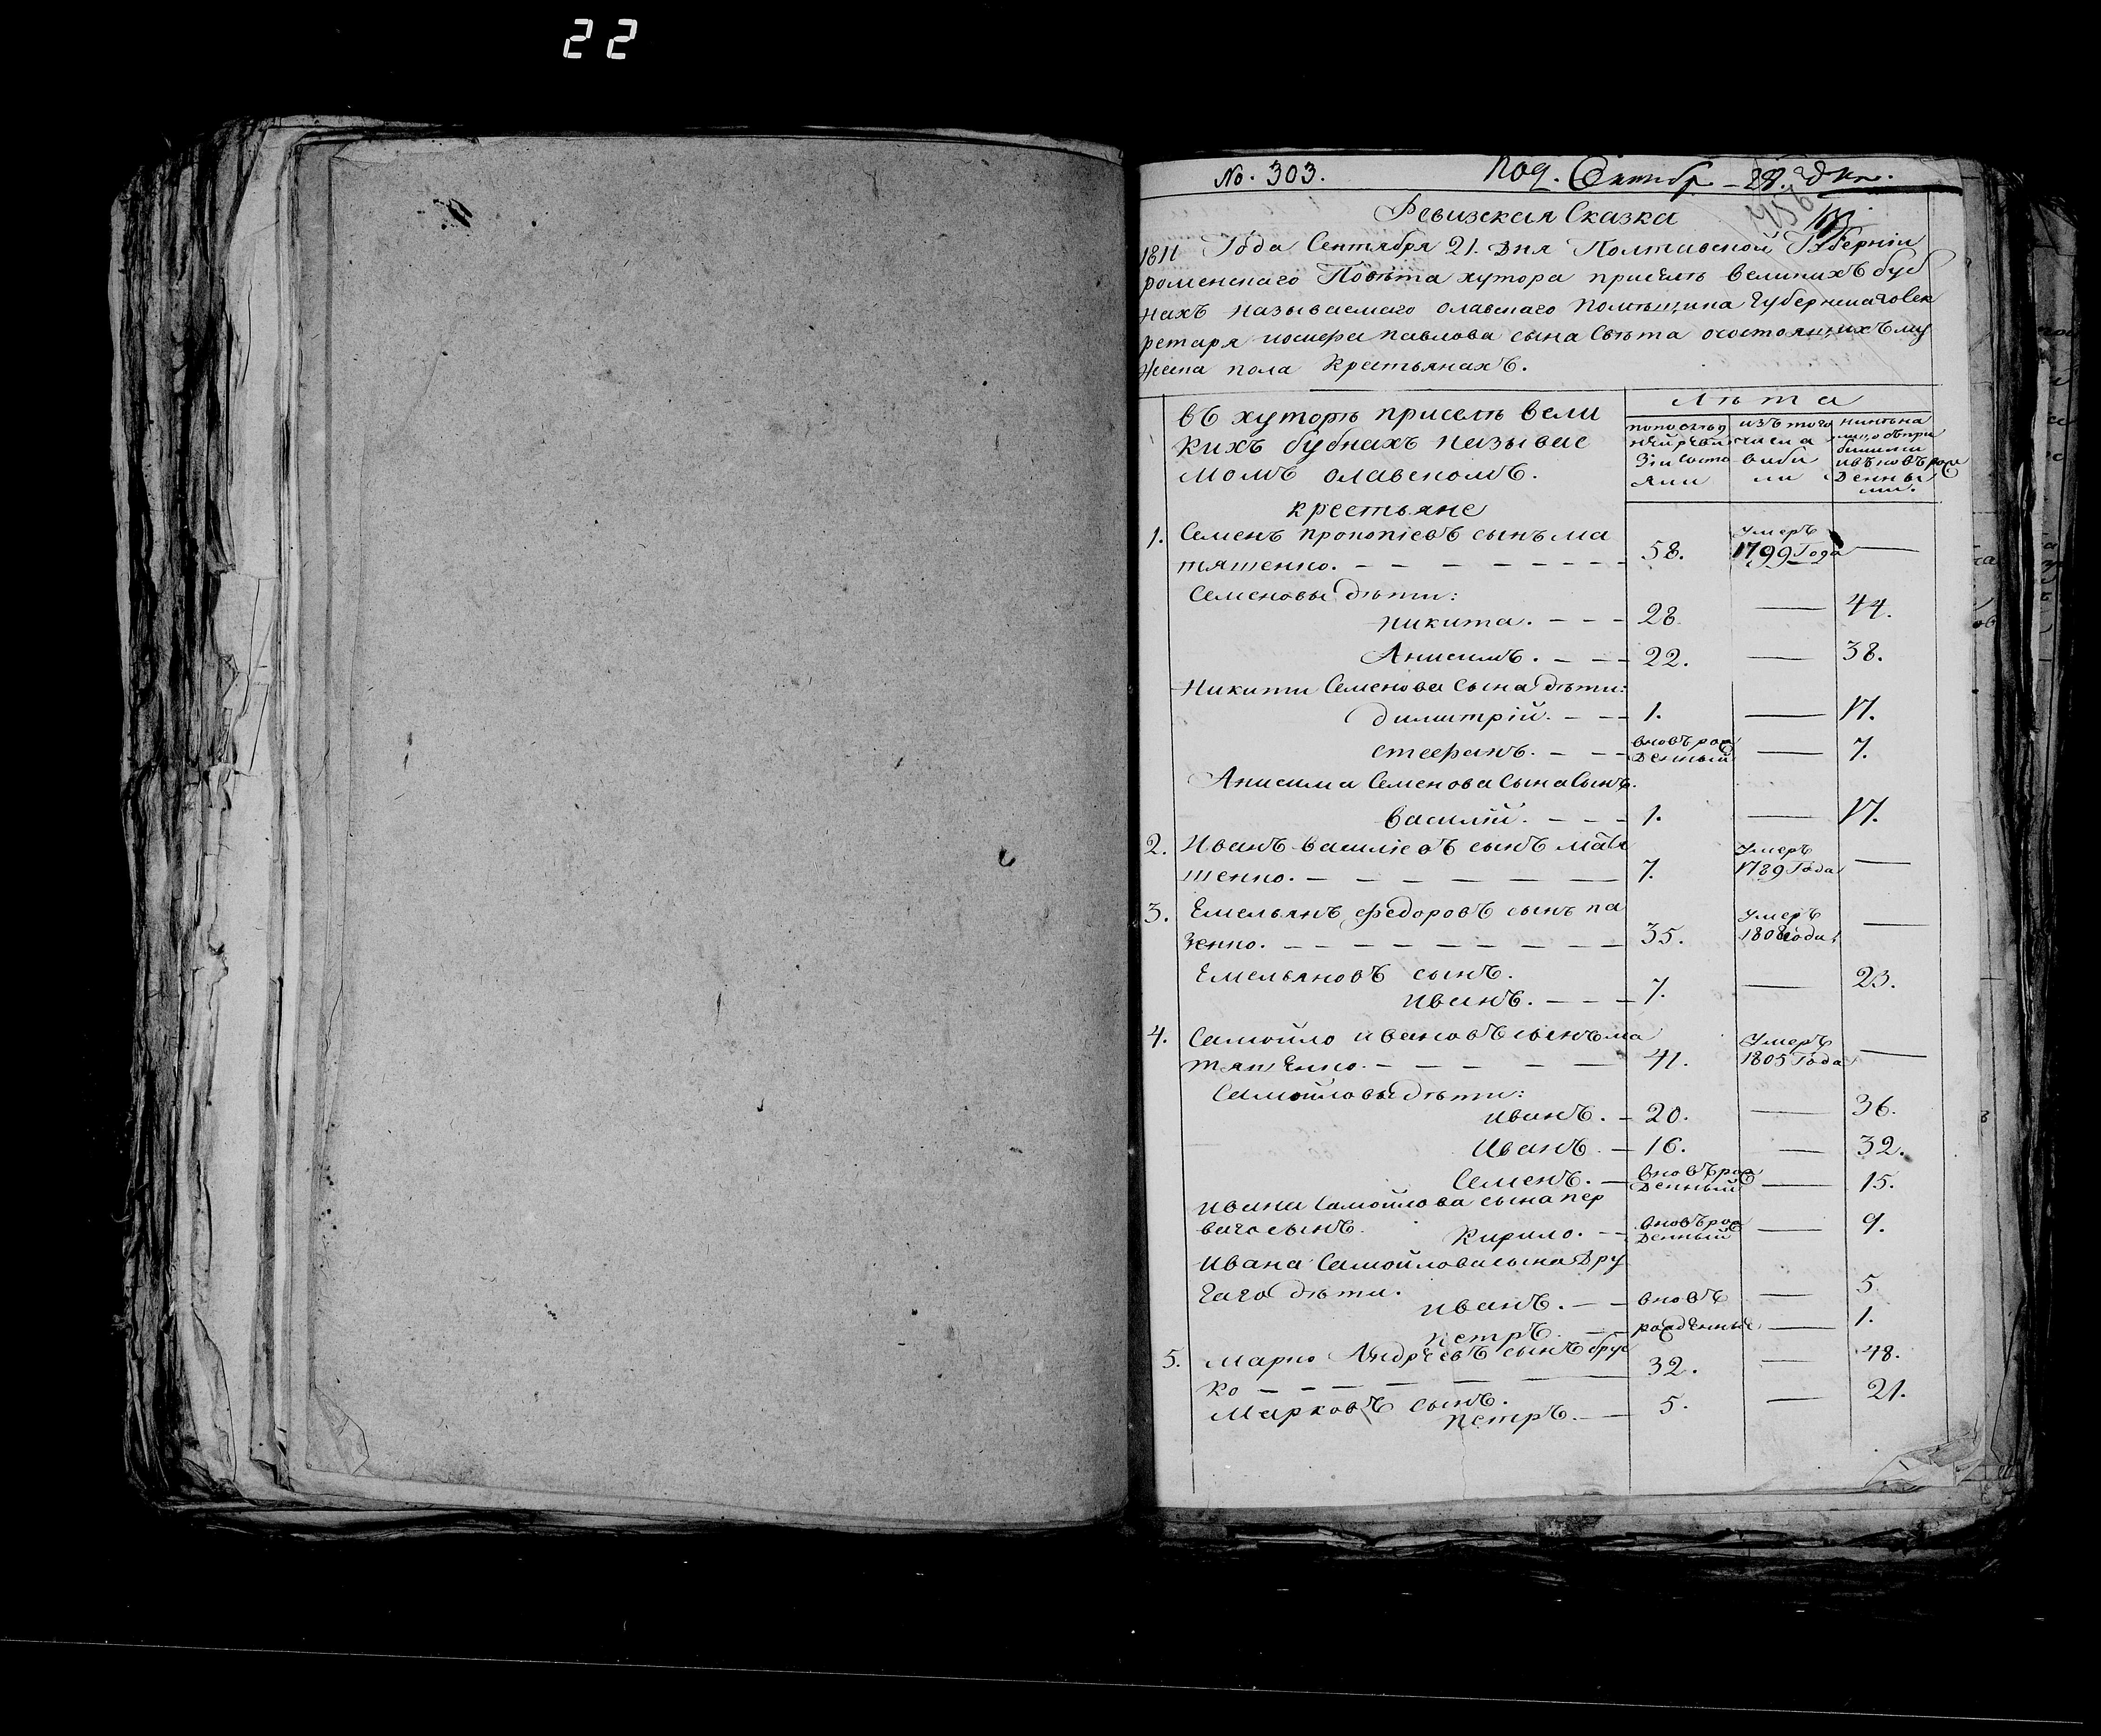 22
No. 303. Под. Октябр - 29. дня.
Ревизская Сказка
1811 Года Сентября 21. Дня Полтавской Губерніи
роменскаго Повѣта хутора приселѣ великихъ буб
нахъ называемаго олавскаго помѣщика Губернскаго Сек
ретаря иосифа павлова сына Свѣта осостоящихъ му
жеска пола крестьянахъ.
Лѣта
въ хуторѣ приселѣ вели
кихъ бубнахъ называе
момъ олавскомъ.
попослѣд
нѣй реви
зіи состо
яли
изъ того
числа
виби
ли
нинѣ на
лицо съпри
билими
ивновъ рож
денны
ми.
крестьяне
1. Семенъ прокопіевъ сынъ ма
тяшенко. - - - - - - - 58. умеръ 1799 Года —
Семеновы дѣти:
никита. - - - 28. — 44.
Анисимъ. - - - 22. — 38.
Никити Семенова сына дѣти:
димитрій. - - - 1. — 17.
стефанъ. - - - вновъ рож денный — 7.
Анисима Семенова сына сынъ.
василій. - - - 1. — 17.
2. Иванъ василіевъ сынъ матя
шенко. - - - - - - 7. умеръ 1789 Года —
3. Емельянъ федоровъ сынъ па
зенко. - - - - - - - - 35. умеръ 1808 Года. —
Емельяновъ сынъ.
иванъ. - - - 7. — 23.
4. Самойло ивановъ сынъ ма
тяшенко. - - - - - 41. умеръ 1805 Года —
Самойловы дѣти:
иванъ. - 20. — 36.
Иванъ. - 16. — 32.
Семенъ. - вновъ рож денный — 15.
ивана Самойлова сына пер
ваго сынъ. Кирило. - - вновъ рож денный — 9.
Ивана Самойлова сына дру
гаго дѣти.
иванъ. - - вновъ — 5.
петръ. - - рожденные — 1.
5. Марко Андреевъ сынъ брус
ко - - - - - - 32. — 48.
Марковъ сынъ.
петръ. - 5. — 21.